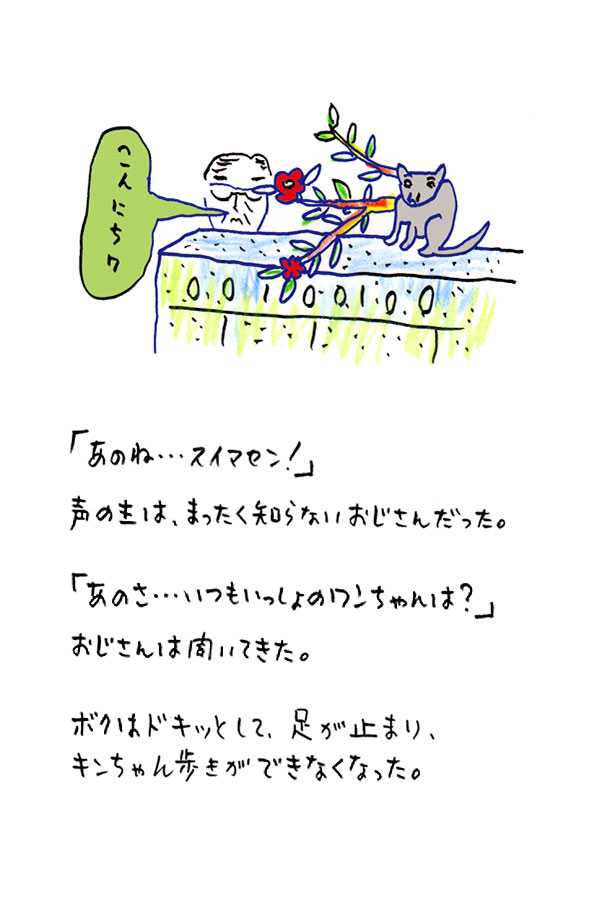 こんにちワ
00100100
「あのね…スイマセン!」
声の主は、まったく知らないおじさんだった。
「あのさ…いつもいっしょのワンちゃんは?」
おじさんは聞いてきた。
ボクはドキッとして、足が止まり、
キンちゃん歩きができなくなった。